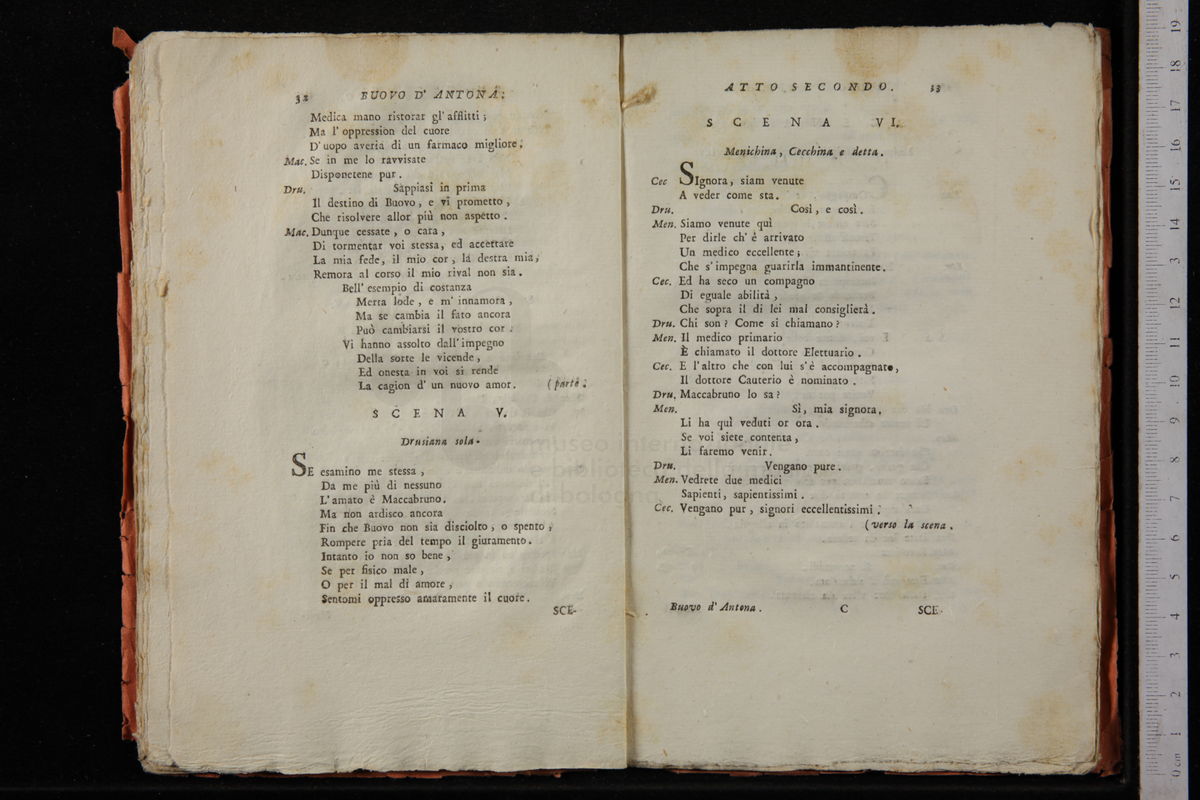 32 BUOVO D' ANTONA:
Medica mano ristorar gl' afflitti;
Ma l' oppression del cuore
D' uopo averia di un farmaco migliore.
Mac. Se in me lo ravvisate
Disponetene pur.
Dru. Sappiasi in prima
Il destino di Buovo, e vi prometto,
Che risolvere allor più non aspetto.
Mac. Dunque cessate, o cara,
Di tormentar voi stessa, ed accettare
La mia fede, il mio cor, la destra mia,
Remora al corso il mio rival non sia.
Bell' esempio di costanza
Merta lode, e m' innamora,
Ma se cambia il fato ancora
Può cambiarsi il vostro cor.
Vi hanno assolto dall' impegno
Della sorte le vicende,
Ed onesta in voi si rende
La cagion d' un nuovo amor. (parte.
SCENA V.
Drusiana sola.
SE esamino me stessa,
Da me più di nessuno
L' amato è Maccabruno.
Ma non ardisco ancora
Fin che Buovo non sia disciolto, o spento,
Rompere pria del tempo il giuramento.
Intanto io non so bene,
Se per fisico male,
O per il mal di amore,
Sentomi oppresso amaramente il cuore.
SCE-
ATTO SECONDO. 33
SCENA VI.
Menichina, Cecchina e detta.
Cec SIgnora, siam venute
A veder come sta.
Dru. Così, e così.
Men. Siamo venute quì
Per dirle ch' è arrivato
Un medico eccellente;
Che s' impegna guarirla immantinente.
Cec. Ed ha seco un compagno
Di eguale abilità,
Che sopra il di lei mal consiglierà.
Dru. Chi son? Come si chiamano?
Men. Il medico primario
È chiamato il dottore Elettuario.
Cec. E l' altro che con lui s' è accompagnato,
Il dottore Cauterio è nominato.
Dru. Maccabruno lo sa?
Men. Sì, mia signora,
Li ha quì veduti or ora.
Se voi siete contenta,
Li faremo venir.
Dru. Vengano pure.
Men. Vedrete due medici
Sapienti, sapientissimi.
Cec. Vengano pur, signori eccellentissimi.
(verso la scena.
Buovo d' Antona. C SCE-
museo internazionale
e biblioteca della musica
di bologna
0 cm 1 2 3 4 5 6 7 8 9 10 11 12 13 14 15 16 17 18 19